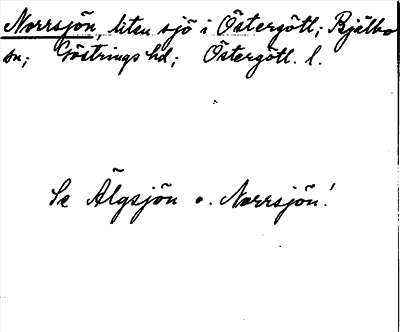 Norrsjön, liten sjö i Östergötl; Bjälbo
sn; Göstrings hd; Östergötl. l.
Se Älgsjön o. Norrsjön!